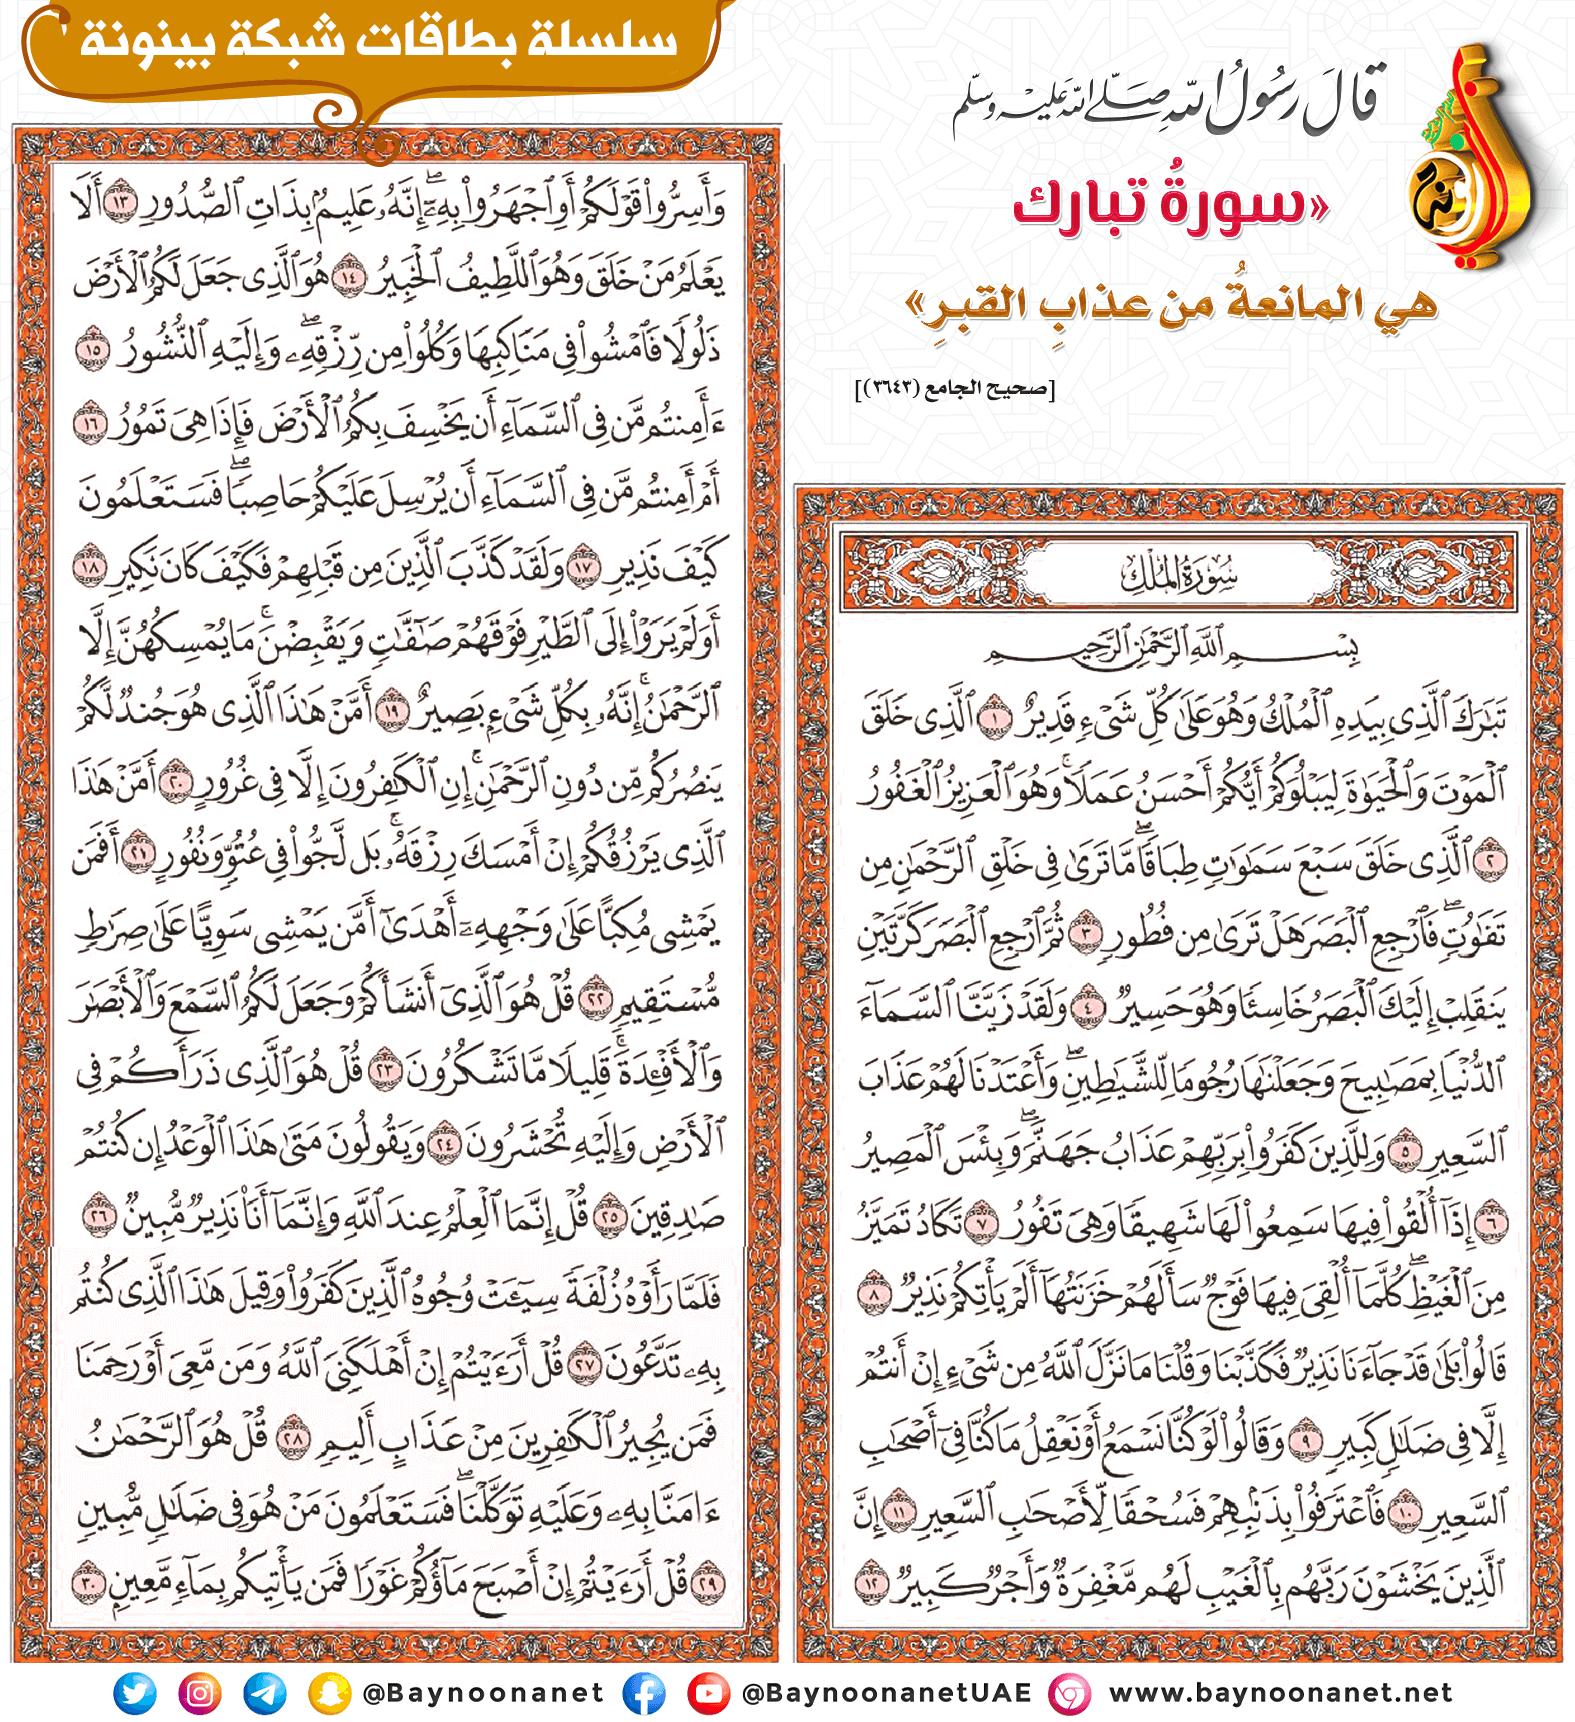 سلسلة بطاقات شبكة بينونة
قال رسول الله صلى الله عليه وسلم
«سورةُ تبارك
هي المانعةُ من عذابِ القبرِ»
[صحيح الجامع (٣٦٤٣)]
سُورَةُ المُلْكِ
بِسْمِ ٱللَّهِ ٱلرَّحْمَٰنِ ٱلرَّحِيمِ
تَبَٰرَكَ ٱلَّذِى بِيَدِهِ ٱلْمُلْكُ وَهُوَ عَلَىٰ كُلِّ شَىْءٍ قَدِيرٌ ١ ٱلَّذِى خَلَقَ
ٱلْمَوْتَ وَٱلْحَيَوٰةَ لِيَبْلُوَكُمْ أَيُّكُمْ أَحْسَنُ عَمَلًا ۚ وَهُوَ ٱلْعَزِيزُ ٱلْغَفُورُ
٢ ٱلَّذِى خَلَقَ سَبْعَ سَمَٰوَٰتٍ طِبَاقًا ۖ مَّا تَرَىٰ فِى خَلْقِ ٱلرَّحْمَٰنِ مِن
تَفَٰوُتٍ ۖ فَٱرْجِعِ ٱلْبَصَرَ هَلْ تَرَىٰ مِن فُطُورٍ ٣ ثُمَّ ٱرْجِعِ ٱلْبَصَرَ كَرَّتَيْنِ
يَنقَلِبْ إِلَيْكَ ٱلْبَصَرُ خَاسِئًا وَهُوَ حَسِيرٌ ٤ وَلَقَدْ زَيَّنَّا ٱلسَّمَآءَ
ٱلدُّنْيَا بِمَصَٰبِيحَ وَجَعَلْنَٰهَا رُجُومًا لِّلشَّيَٰطِينِ ۖ وَأَعْتَدْنَا لَهُمْ عَذَابَ
ٱلسَّعِيرِ ٥ وَلِلَّذِينَ كَفَرُوا۟ بِرَبِّهِمْ عَذَابُ جَهَنَّمَ ۖ وَبِئْسَ ٱلْمَصِيرُ
٦ إِذَآ أُلْقُوا۟ فِيهَا سَمِعُوا۟ لَهَا شَهِيقًا وَهِىَ تَفُورُ ٧ تَكَادُ تَمَيَّزُ
مِنَ ٱلْغَيْظِ ۖ كُلَّمَآ أُلْقِىَ فِيهَا فَوْجٌ سَأَلَهُمْ خَزَنَتُهَآ أَلَمْ يَأْتِكُمْ نَذِيرٌ ٨
قَالُوا۟ بَلَىٰ قَدْ جَآءَنَا نَذِيرٌ فَكَذَّبْنَا وَقُلْنَا مَا نَزَّلَ ٱللَّهُ مِن شَىْءٍ إِنْ أَنتُمْ
إِلَّا فِى ضَلَٰلٍ كَبِيرٍ ٩ وَقَالُوا۟ لَوْ كُنَّا نَسْمَعُ أَوْ نَعْقِلُ مَا كُنَّا فِىٓ أَصْحَٰبِ
ٱلسَّعِيرِ ١٠ فَٱعْتَرَفُوا۟ بِذَنۢبِهِمْ فَسُحْقًا لِّأَصْحَٰبِ ٱلسَّعِيرِ ١١ إِنَّ
ٱلَّذِينَ يَخْشَوْنَ رَبَّهُم بِٱلْغَيْبِ لَهُم مَّغْفِرَةٌ وَأَجْرٌ كَبِيرٌ ١٢
وَأَسِرُّوا۟ قَوْلَكُمْ أَوِ ٱجْهَرُوا۟ بِهِۦٓ ۖ إِنَّهُۥ عَلِيمٌۢ بِذَاتِ ٱلصُّدُورِ ١٣ أَلَا
يَعْلَمُ مَنْ خَلَقَ وَهُوَ ٱللَّطِيفُ ٱلْخَبِيرُ ١٤ هُوَ ٱلَّذِى جَعَلَ لَكُمُ ٱلْأَرْضَ
ذَلُولًا فَٱمْشُوا۟ فِى مَنَاكِبِهَا وَكُلُوا۟ مِن رِّزْقِهِۦ ۖ وَإِلَيْهِ ٱلنُّشُورُ ١٥
ءَأَمِنتُم مَّن فِى ٱلسَّمَآءِ أَن يَخْسِفَ بِكُمُ ٱلْأَرْضَ فَإِذَا هِىَ تَمُورُ ١٦
أَمْ أَمِنتُم مَّن فِى ٱلسَّمَآءِ أَن يُرْسِلَ عَلَيْكُمْ حَاصِبًا ۖ فَسَتَعْلَمُونَ
كَيْفَ نَذِيرِ ١٧ وَلَقَدْ كَذَّبَ ٱلَّذِينَ مِن قَبْلِهِمْ فَكَيْفَ كَانَ نَكِيرِ ١٨
أَوَلَمْ يَرَوْا۟ إِلَى ٱلطَّيْرِ فَوْقَهُمْ صَٰٓفَّٰتٍ وَيَقْبِضْنَ ۚ مَا يُمْسِكُهُنَّ إِلَّا
ٱلرَّحْمَٰنُ ۚ إِنَّهُۥ بِكُلِّ شَىْءٍۭ بَصِيرٌ ١٩ أَمَّنْ هَٰذَا ٱلَّذِى هُوَ جُندٌ لَّكُمْ
يَنصُرُكُم مِّن دُونِ ٱلرَّحْمَٰنِ ۚ إِنِ ٱلْكَٰفِرُونَ إِلَّا فِى غُرُورٍ ٢٠ أَمَّنْ هَٰذَا
ٱلَّذِى يَرْزُقُكُمْ إِنْ أَمْسَكَ رِزْقَهُۥ ۚ بَل لَّجُّوا۟ فِى عُتُوٍّ وَنُفُورٍ ٢١ أَفَمَن
يَمْشِى مُكِبًّا عَلَىٰ وَجْهِهِۦٓ أَهْدَىٰٓ أَمَّن يَمْشِى سَوِيًّا عَلَىٰ صِرَٰطٍ
مُّسْتَقِيمٍ ٢٢ قُلْ هُوَ ٱلَّذِىٓ أَنشَأَكُمْ وَجَعَلَ لَكُمُ ٱلسَّمْعَ وَٱلْأَبْصَٰرَ
وَٱلْأَفْـِٔدَةَ ۖ قَلِيلًا مَّا تَشْكُرُونَ ٢٣ قُلْ هُوَ ٱلَّذِى ذَرَأَكُمْ فِى
ٱلْأَرْضِ وَإِلَيْهِ تُحْشَرُونَ ٢٤ وَيَقُولُونَ مَتَىٰ هَٰذَا ٱلْوَعْدُ إِن كُنتُمْ
صَٰدِقِينَ ٢٥ قُلْ إِنَّمَا ٱلْعِلْمُ عِندَ ٱللَّهِ وَإِنَّمَآ أَنَا۠ نَذِيرٌ مُّبِينٌ ٢٦
فَلَمَّا رَأَوْهُ زُلْفَةً سِيٓـَٔتْ وُجُوهُ ٱلَّذِينَ كَفَرُوا۟ وَقِيلَ هَٰذَا ٱلَّذِى كُنتُم
بِهِۦ تَدَّعُونَ ٢٧ قُلْ أَرَءَيْتُمْ إِنْ أَهْلَكَنِىَ ٱللَّهُ وَمَن مَّعِىَ أَوْ رَحِمَنَا
فَمَن يُجِيرُ ٱلْكَٰفِرِينَ مِنْ عَذَابٍ أَلِيمٍ ٢٨ قُلْ هُوَ ٱلرَّحْمَٰنُ
ءَامَنَّا بِهِۦ وَعَلَيْهِ تَوَكَّلْنَا ۖ فَسَتَعْلَمُونَ مَنْ هُوَ فِى ضَلَٰلٍ مُّبِينٍ
٢٩ قُلْ أَرَءَيْتُمْ إِنْ أَصْبَحَ مَآؤُكُمْ غَوْرًا فَمَن يَأْتِيكُم بِمَآءٍ مَّعِينٍۭ ٣٠
@Baynoonanet @BaynoonanetUAE www.baynoonanet.net